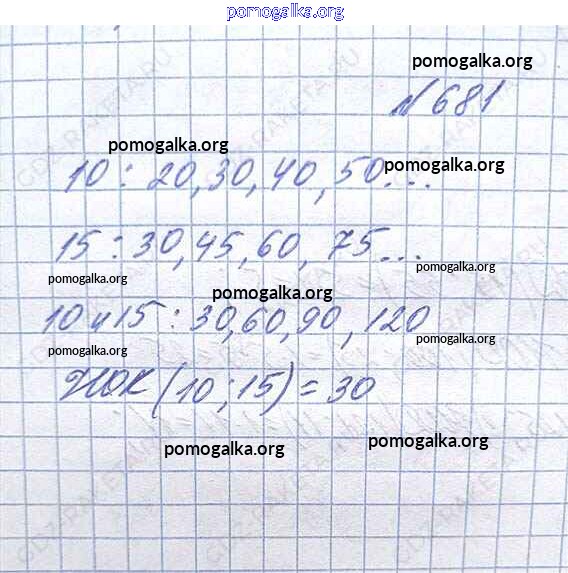 pomogalka.org
pomogalka.org
№ 681
pomogalka.org
10 : 20, 30, 40, 50...
pomogalka.org
15 : 30, 45, 60, 75...
pomogalka.org
pomogalka.org
pomogalka.org
10 и 15 : 30, 60, 90, 120
pomogalka.org
pomogalka.org
НОК (10; 15) = 30
pomogalka.org
pomogalka.org